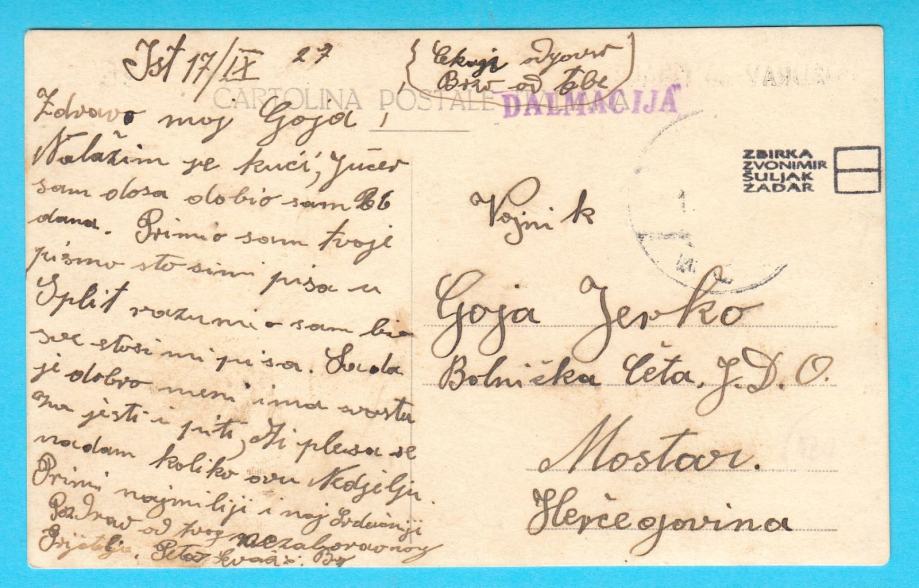 Ist 17/IX 27
(Čekaji odgovor
Brzo od Tebe)
CARTOLINA POSTALE
DALMACIJA
Zdravo moj Goja,
Nalazim se kući, Jučer
sam dosa dobio sam
dana. Primio sam tvoje
pismo sto simi pisa u
Split razumio sam
sve stosi mi pisa. Sada
je dobro meni ima
za jesti i piti, i plesa se
nadam koliko ovu Nedjelju.
Primi najmiliji i naj Srdačniji
Pozdrav od tvog nezaboravnog
Prijatelja.
ZBIRKA
ZVONIMIR
ŠULJAK
ZADAR
Vojnik
Goja Jerko
Bolnička Četa. J.D.O.
Mostar.
Herčegovina